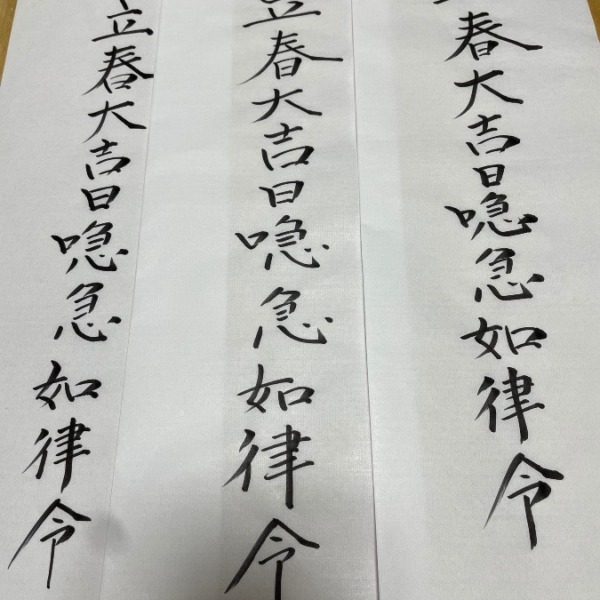 春大吉日喼急如律令
立春大吉日喼急如律令
立春大吉日喼急如律令